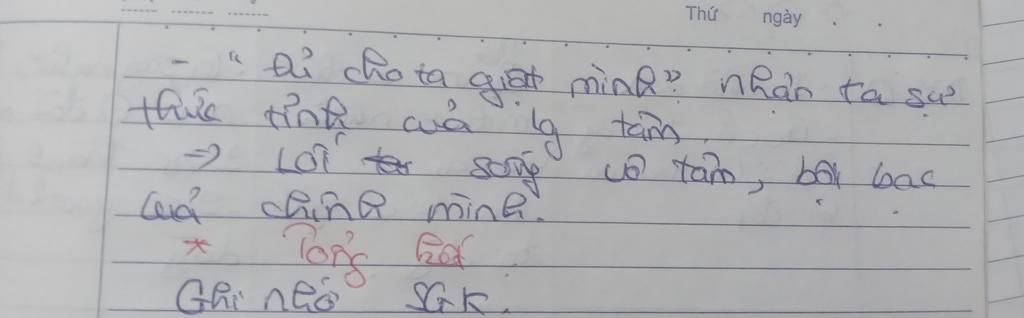 Thứ ngày . .
- "Đủ cho ta giật mình" nhận ra sự
thức tỉnh của lg tâm.
=> Lối sống vô tâm, bội bạc
của chính mình.
* Tổng kết
Ghi nhớ SGK.